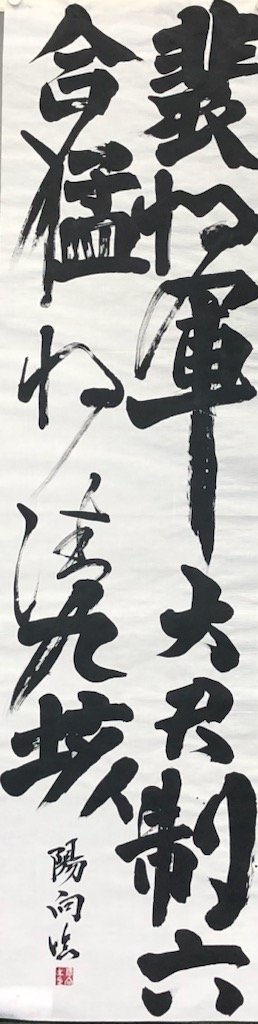 裴将軍大君制六
合猛将清九垓
陽向臨